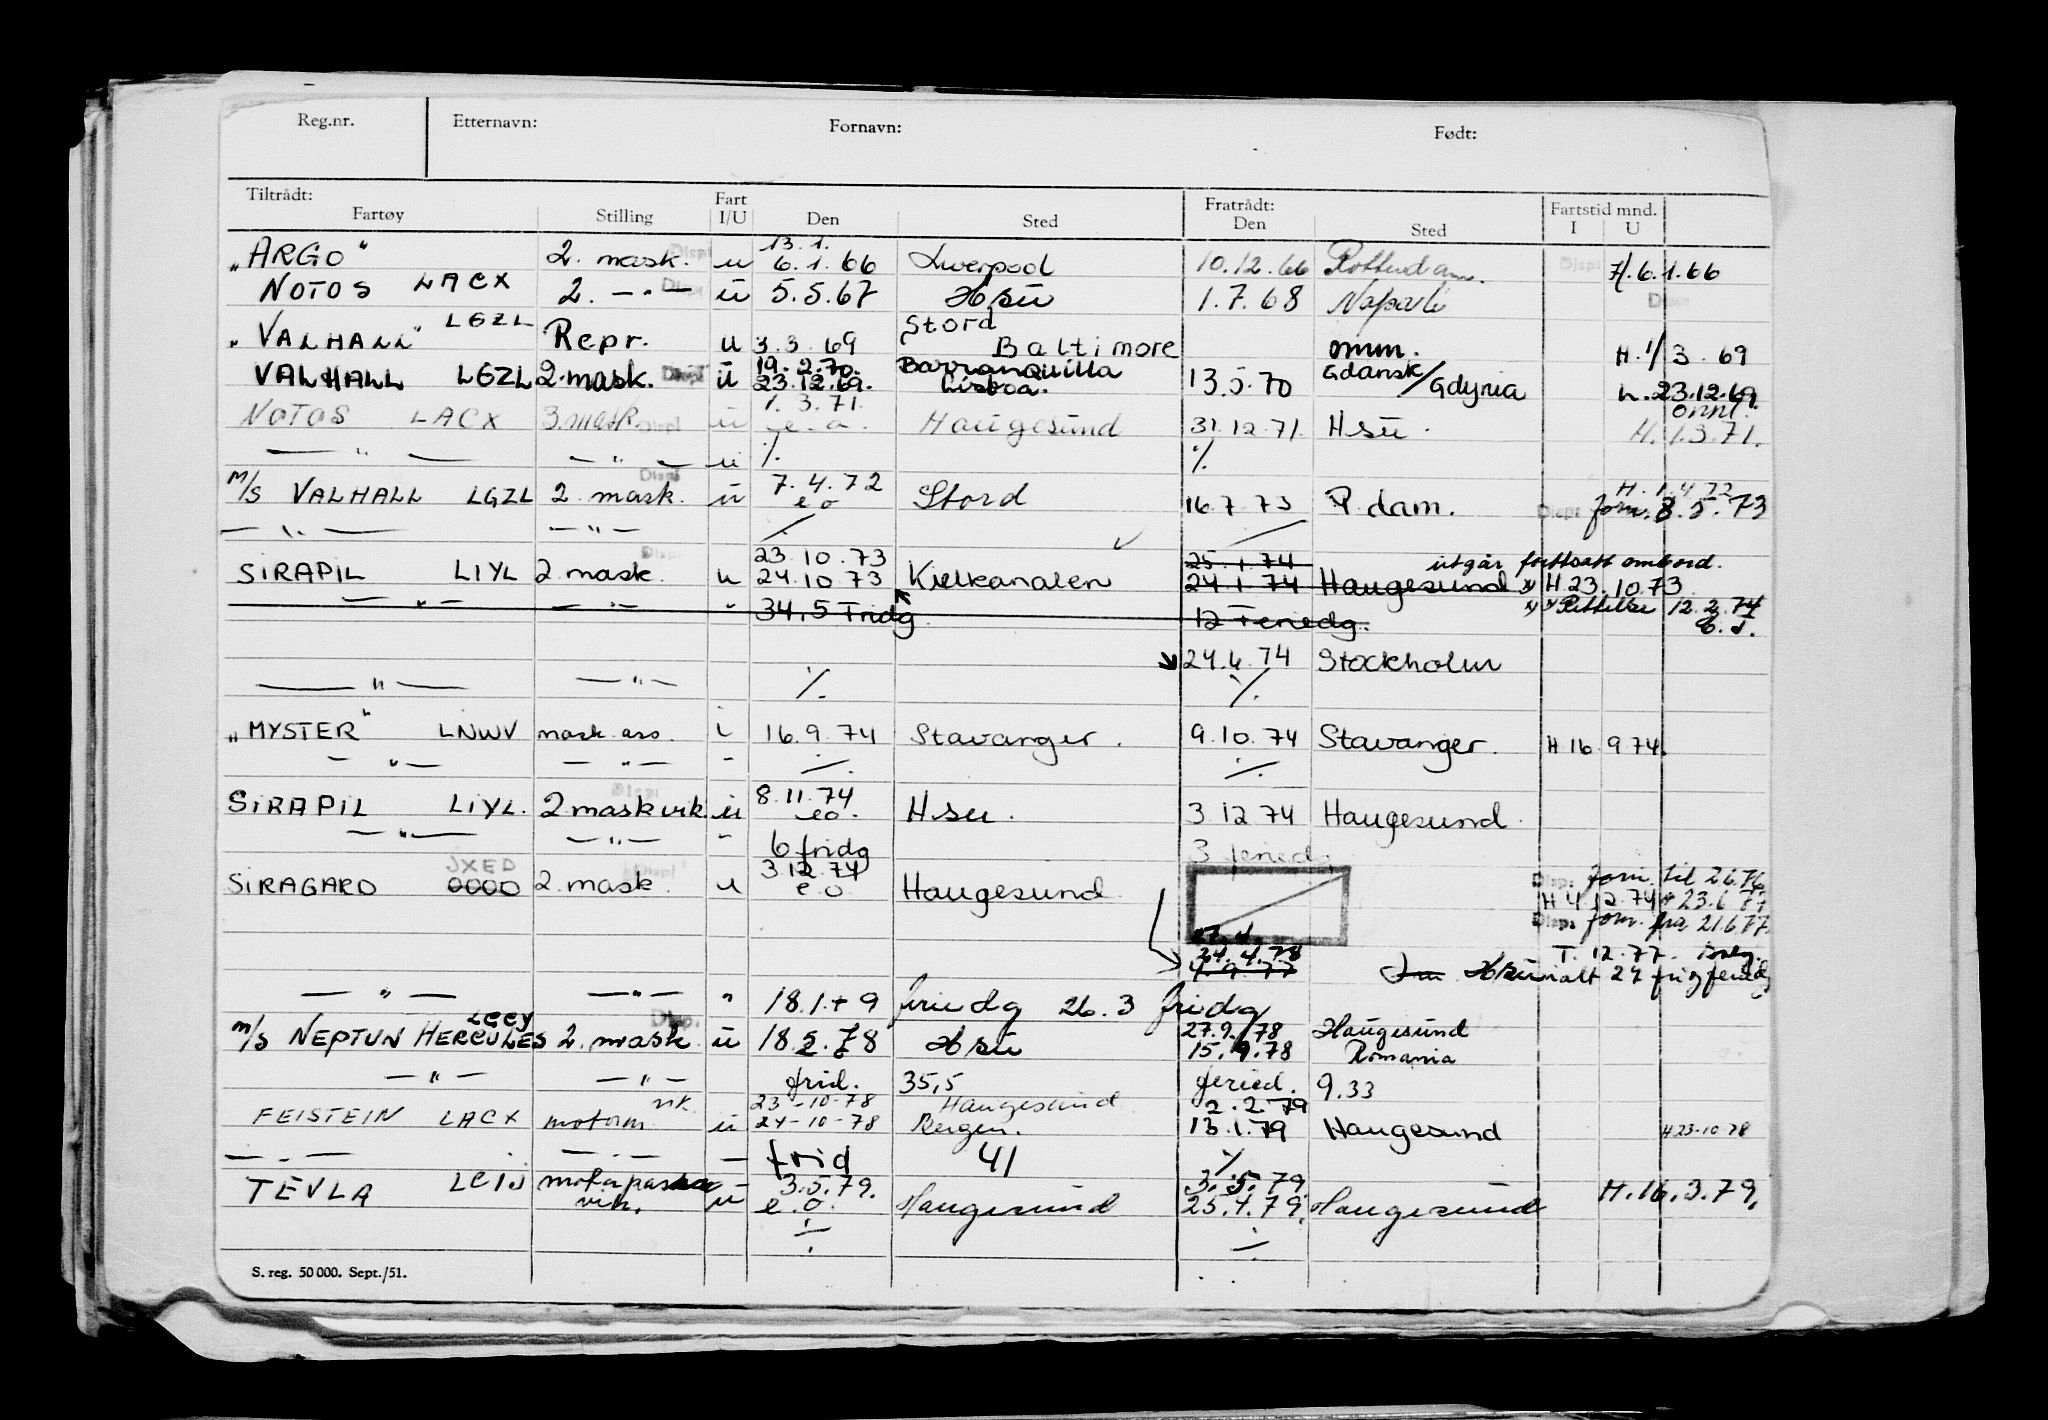 Reg.nr. Etternavn: Fornavn: Født:
Tiltrådt: Fart Fratrådt: Fartstid mnd.
Fartøy Stilling I/U Den Sted Den Sted I U
13.1.
„ARGO" 2. mask. u 6.1.66 Liverpool 10.12.66 Rotterdam H.6.1.66
NOTOS LACX 2. —"— ü 5.5.67 Hsu 1.7.68 Napoli
Stord
„VALHALL" LGZL Repr. u 3.3.69 Baltimore omm. H. 1/3.69
19.2.70. Barranquilla Gdansk
VALHALL LGZL 2.mask. Displ ü 23.12.69. Lisboa. 13.5.70 /Gdynia h.23.12.69.
1.3.71. omm.
NOTOS LACX 3.mask. Displ ü e.o. Haugesund 31.12.71. Hsu. H.1.3.71.
—"— —"— u ./. ./.
Displ 7.4.72 H.1.4.72
M/S VALHALL LGZL 2. mask. ü e o Stord 16.7.73 R.dam. Disp: forn. 8.5.73
—"— —"— / /
23.10.73 25.1.74 utgår fortsatt ombord.
SIRAPIL LIYL 2 mask. u 24.10.73 Kielkanalen 24.1.74 Haugesund x) H 23.10.73
—"— —"— " 34,5 Fridg 12 Feriedg. x) Rettelse 12.2.74
24.6.74 Stockholm
—"— —"— ./. ./.
„MYSTER" LNWV mask.ass. i 16.9.74 Stavanger. 9.10.74 Stavanger. H 16.9.74.
—"— —"— " ./. ./.
8.11.74
SIRAPIL LIYL. 2 mask vik. u eo. Hsu. 3.12.74 Haugesund.
—"— —"— " 6 fridg 3 feried.
JXED 3.12.74 Disp: forn. til 2.6.76
SIRAGARD OOOO 2. mask. u e o Haugesund. H 4.12.74
Disp: forn. fra 21.6.77.
24.4.78 T. 12.77.
4.9.77 Hsu ialt 27 fri/feriedg
—"— —"— " 18.1 + 9 feriedg 26.3 fridg
LCCY 27.9.78 Haugesund
M/S NEPTUN HERCULES 2. mask. ü 18.5.78 Hsu 15.9.78 Romania
—"— —"— frid. 35,5 feried. 9.33
vik. 23-10-78 Haugesund 2.2.79
FEISTEIN LACX motorm ü 24-10-78 Bergen. 13.1.79 Haugesund H 23-10-78
—"— —"— — frid 41 ./.
3.5.79. 3.5.79.
TEVLA LCIJ motorpasser vik. ü e.o. Haugesund 25.4.79. Haugesund H.16.3.79.
./. ./.
S. reg. 50 000. Sept./51.